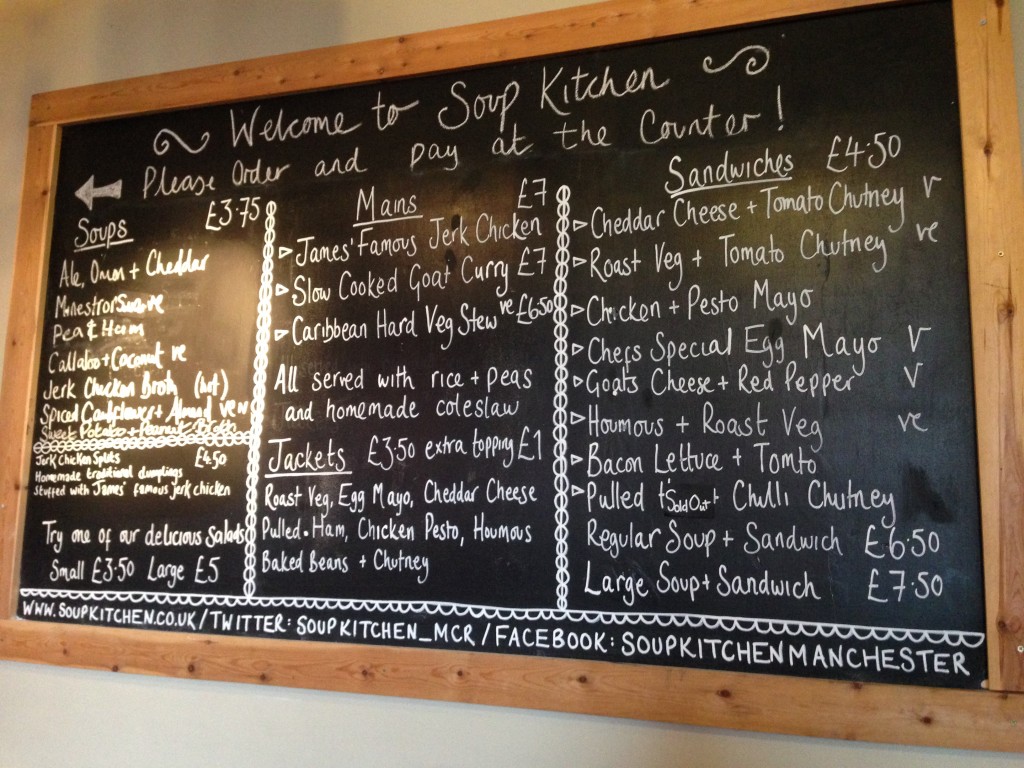 Welcome to Soup Kitchen
Please Order and pay at the Counter!
Soups £3.75
Ale, Onion + Cheddar
Minestrone ve
Pea & Ham
Callaloo + Coconut ve
Jerk Chicken Broth (hot)
Spiced Cauliflower + Almond ve
Sweet Potato + Peanut
Jerk Chicken Splits £4.50
Homemade traditional dumplings
stuffed with James' famous jerk chicken
Try one of our delicious Salads
Small £3.50 Large £5
Mains £7
James' Famous Jerk Chicken
Slow Cooked Goat Curry £7
Caribbean Hard Veg Stew ve £6.50
All served with rice + peas
and homemade coleslaw
Jackets £3.50 extra topping £1
Roast Veg, Egg Mayo, Cheddar Cheese
Pulled.Ham, Chicken Pesto, Houmous
Baked Beans + Chutney
Sandwiches £4.50
Cheddar Cheese + Tomato Chutney V
Roast Veg + Tomato Chutney ve
Chicken + Pesto Mayo
Chefs Special Egg Mayo V
Goats Cheese + Red Pepper V
Houmous + Roast Veg ve
Bacon Lettuce + Tomto
Pulled Sold Out Chilli Chutney
Regular Soup + Sandwich £6.50
Large Soup + Sandwich £7.50
WWW.SOUPKITCHEN.CO.UK / TWITTER: SOUPKITCHEN_MCR / FACEBOOK: SOUPKITCHENMANCHESTER